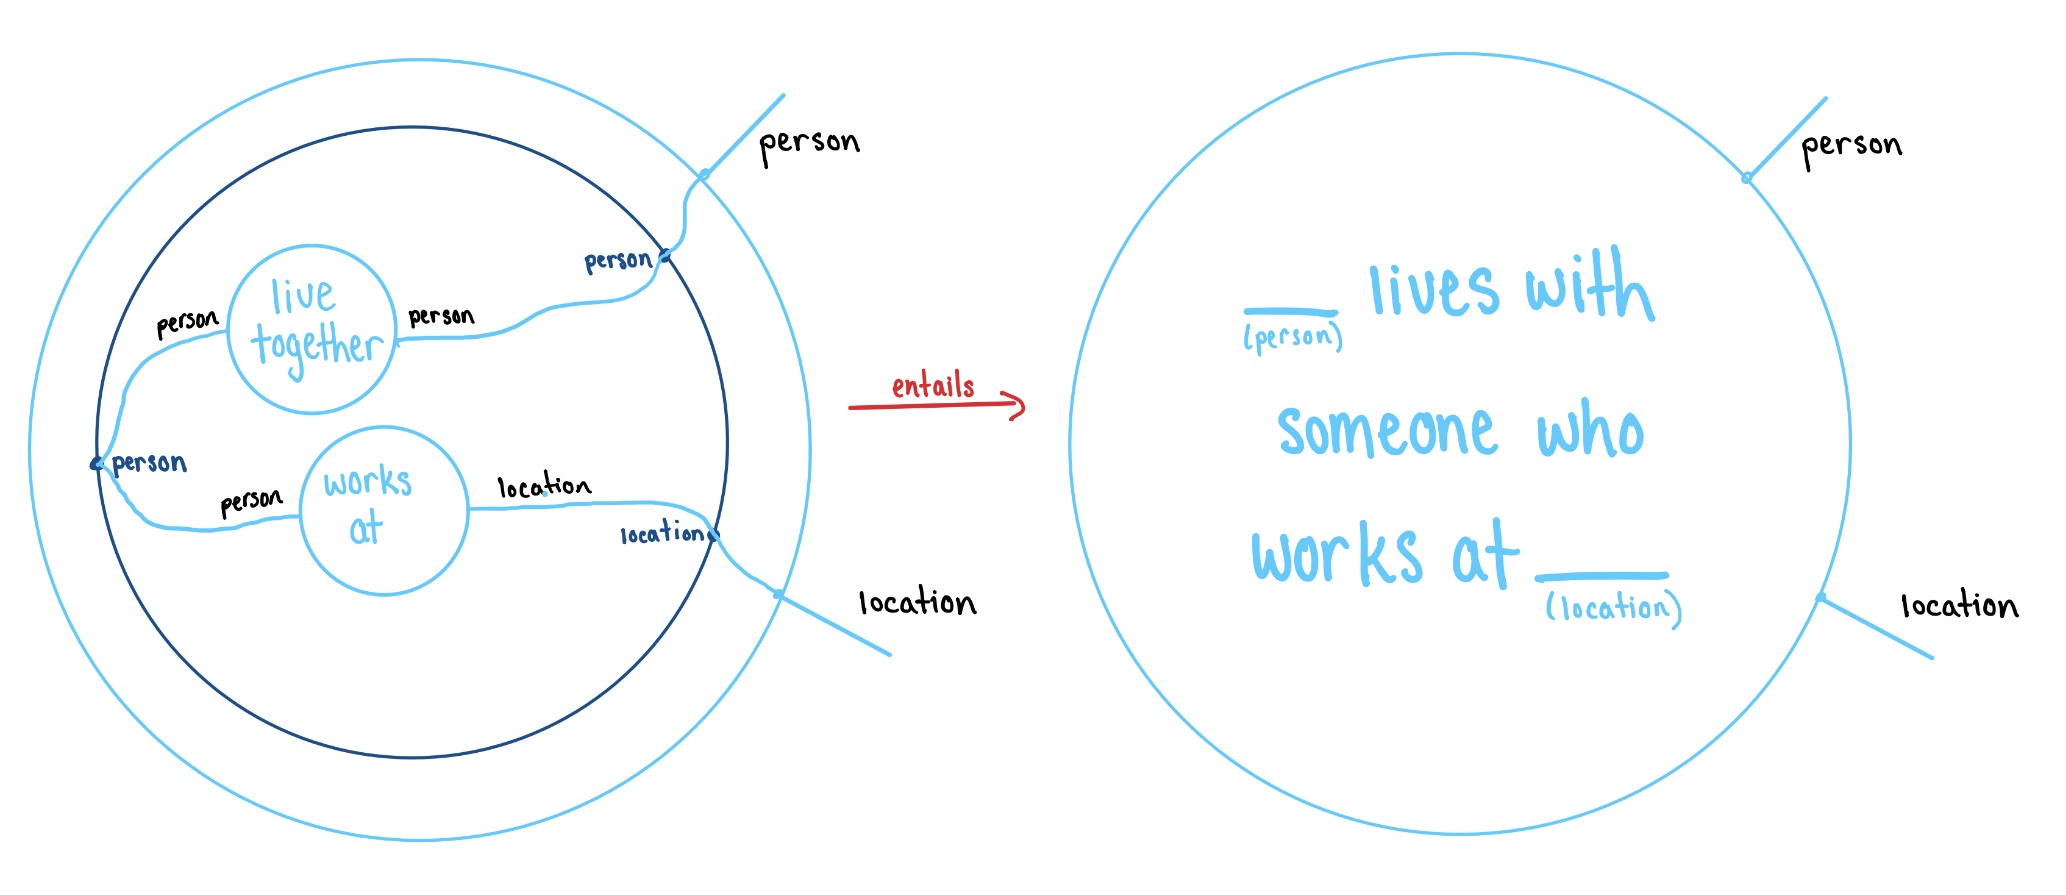 person
person
live
together
person
person
person
person
works
at
location
location
location
entails
person
____ lives with
(person)
someone who
works at ____
(location)
location